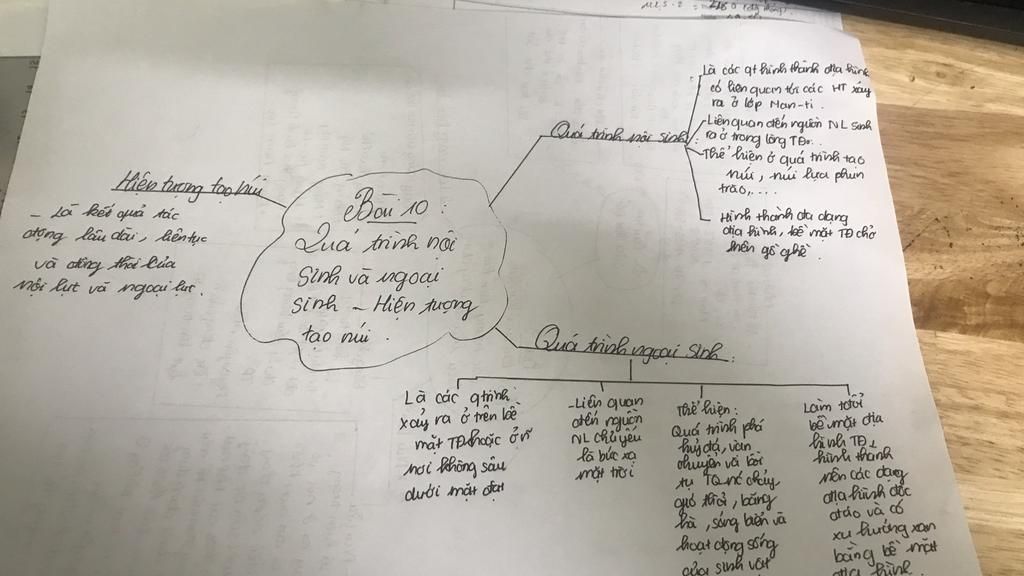 Bài 10:
Quá trình nội
sinh và ngoại
sinh – Hiện tượng
tạo núi.
Hiện tượng tạo núi
- Là kết quả tác
động lâu dài, liên tục
và đồng thời của
nội lực và ngoại lực.
Quá trình nội sinh:
Là các qt hình thành địa hình
có liên quan tới các HT xảy
ra ở lớp Man-ti.
Liên quan đến nguồn NL sinh
ra ở trong lòng TĐ.
Thể hiện ở quá trình tạo
núi, núi lửa phun
trào,....
Hình thành đa dạng
địa hình, bề mặt TĐ trở
nên gồ ghề.
Quá trình ngoại sinh:
Là các q trình
xảy ra ở trên bề
mặt TĐ hoặc ở n~
nơi không sâu
dưới mặt đất
- Liên quan
đến nguồn
NL chủ yếu
là bức xạ
mặt trời
Thể hiện:
Quá trình phá
hủy đá, vận
chuyển và bồi
tụ
gió thổi, băng
hà, sóng biển và
hoạt động sống
của sinh vật
Làm thay đổi
bề mặt địa
hình TĐ,
hình thành
nên các dạng
địa hình độc
đáo và có
xu hướng san
bằng bề mặt
địa hình